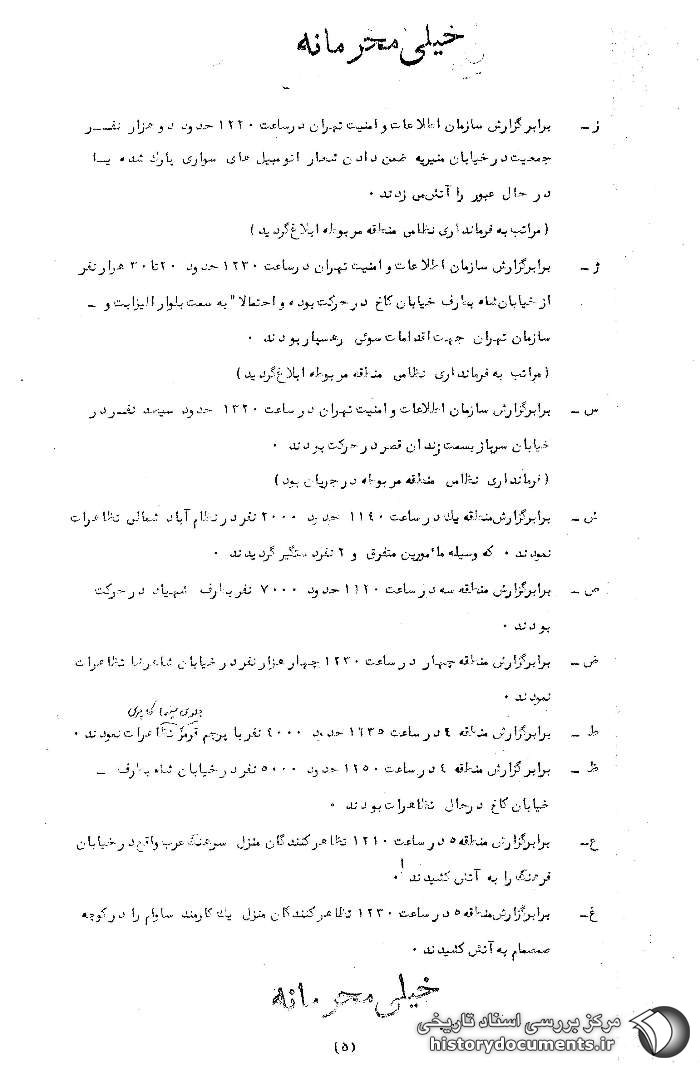 خیلی محرمانه
ز - برابر گزارش سازمان اطلاعات و امنیت تهران در ساعت ۱۲۲۰ حدود دو هزار نفر در
جمعیت در خیابان منیریه ضمن دادن شعار اتومبیل های سواری پارک شده یا
در حال عبور را آتش می زدند .
(مراتب به فرمانداری نظامی منطقه مربوطه ابلاغ گردید)
ژ - برابر گزارش سازمان اطلاعات و امنیت تهران در ساعت ۱۲۳۰ حدود ۲۰ تا ۳۰ هزار نفر
از خیابان شاه بطرف خیابان کاخ در حرکت بوده و احتمالا" به سمت بلوار الیزابت و -
سازمان تهران جهت اقدامات سوئی رهسپار بودند .
(مراتب به فرمانداری نظامی منطقه مربوطه ابلاغ گردید)
س - برابر گزارش سازمان اطلاعات و امنیت تهران در ساعت ۱۳۲۰ حدود سیصد نفر در
خیابان سرباز بسمت زندان قصر در حرکت بودند .
(فرمانداری نظامی منطقه مربوطه در جریان بود)
ش - برابر گزارش منطقه یک در ساعت ۱۱۴۰ حدود ۲۰۰۰ نفر در نظام آباد شمالی تظاهرات
نمودند . که وسیله مأمورین متفرق و ۲ نفر دستگیر گردیدند .
ص - برابر گزارش منطقه سه در ساعت ۱۱۲۰ حدود ۷۰۰۰ نفر بطرف شهیاد در حرکت
بودند .
ض - برابر گزارش منطقه چهار در ساعت ۱۲۳۰ چهار هزار نفر در خیابان شاهرضا تظاهرات
نمودند .
جلوی
ط - برابر گزارش منطقه ۴ در ساعت ۱۲۳۵ حدود ۴۰۰۰ نفر با پرچم قرمز تظاهرات نمودند .
ظ - برابر گزارش منطقه ۴ در ساعت ۱۲۵۰ حدود ۵۰۰۰ نفر در خیابان شاه بطرف -
خیابان کاخ در حال تظاهرات بودند .
ع - برابر گزارش منطقه ۵ در ساعت ۱۲۱۰ تظاهر کنندگان منزل سرهنگ عرب واقع در خیابان
فرهنگ را به آتش کشیدند .
غ - برابر گزارش منطقه ۵ در ساعت ۱۲۳۰ تظاهر کنندگان منزل یک کارمند ساواک را در کوچه
صمصام به آتش کشیدند .
خیلی محرمانه
(۵)
مرکز بررسی اسناد تاریخی
historydocuments.ir